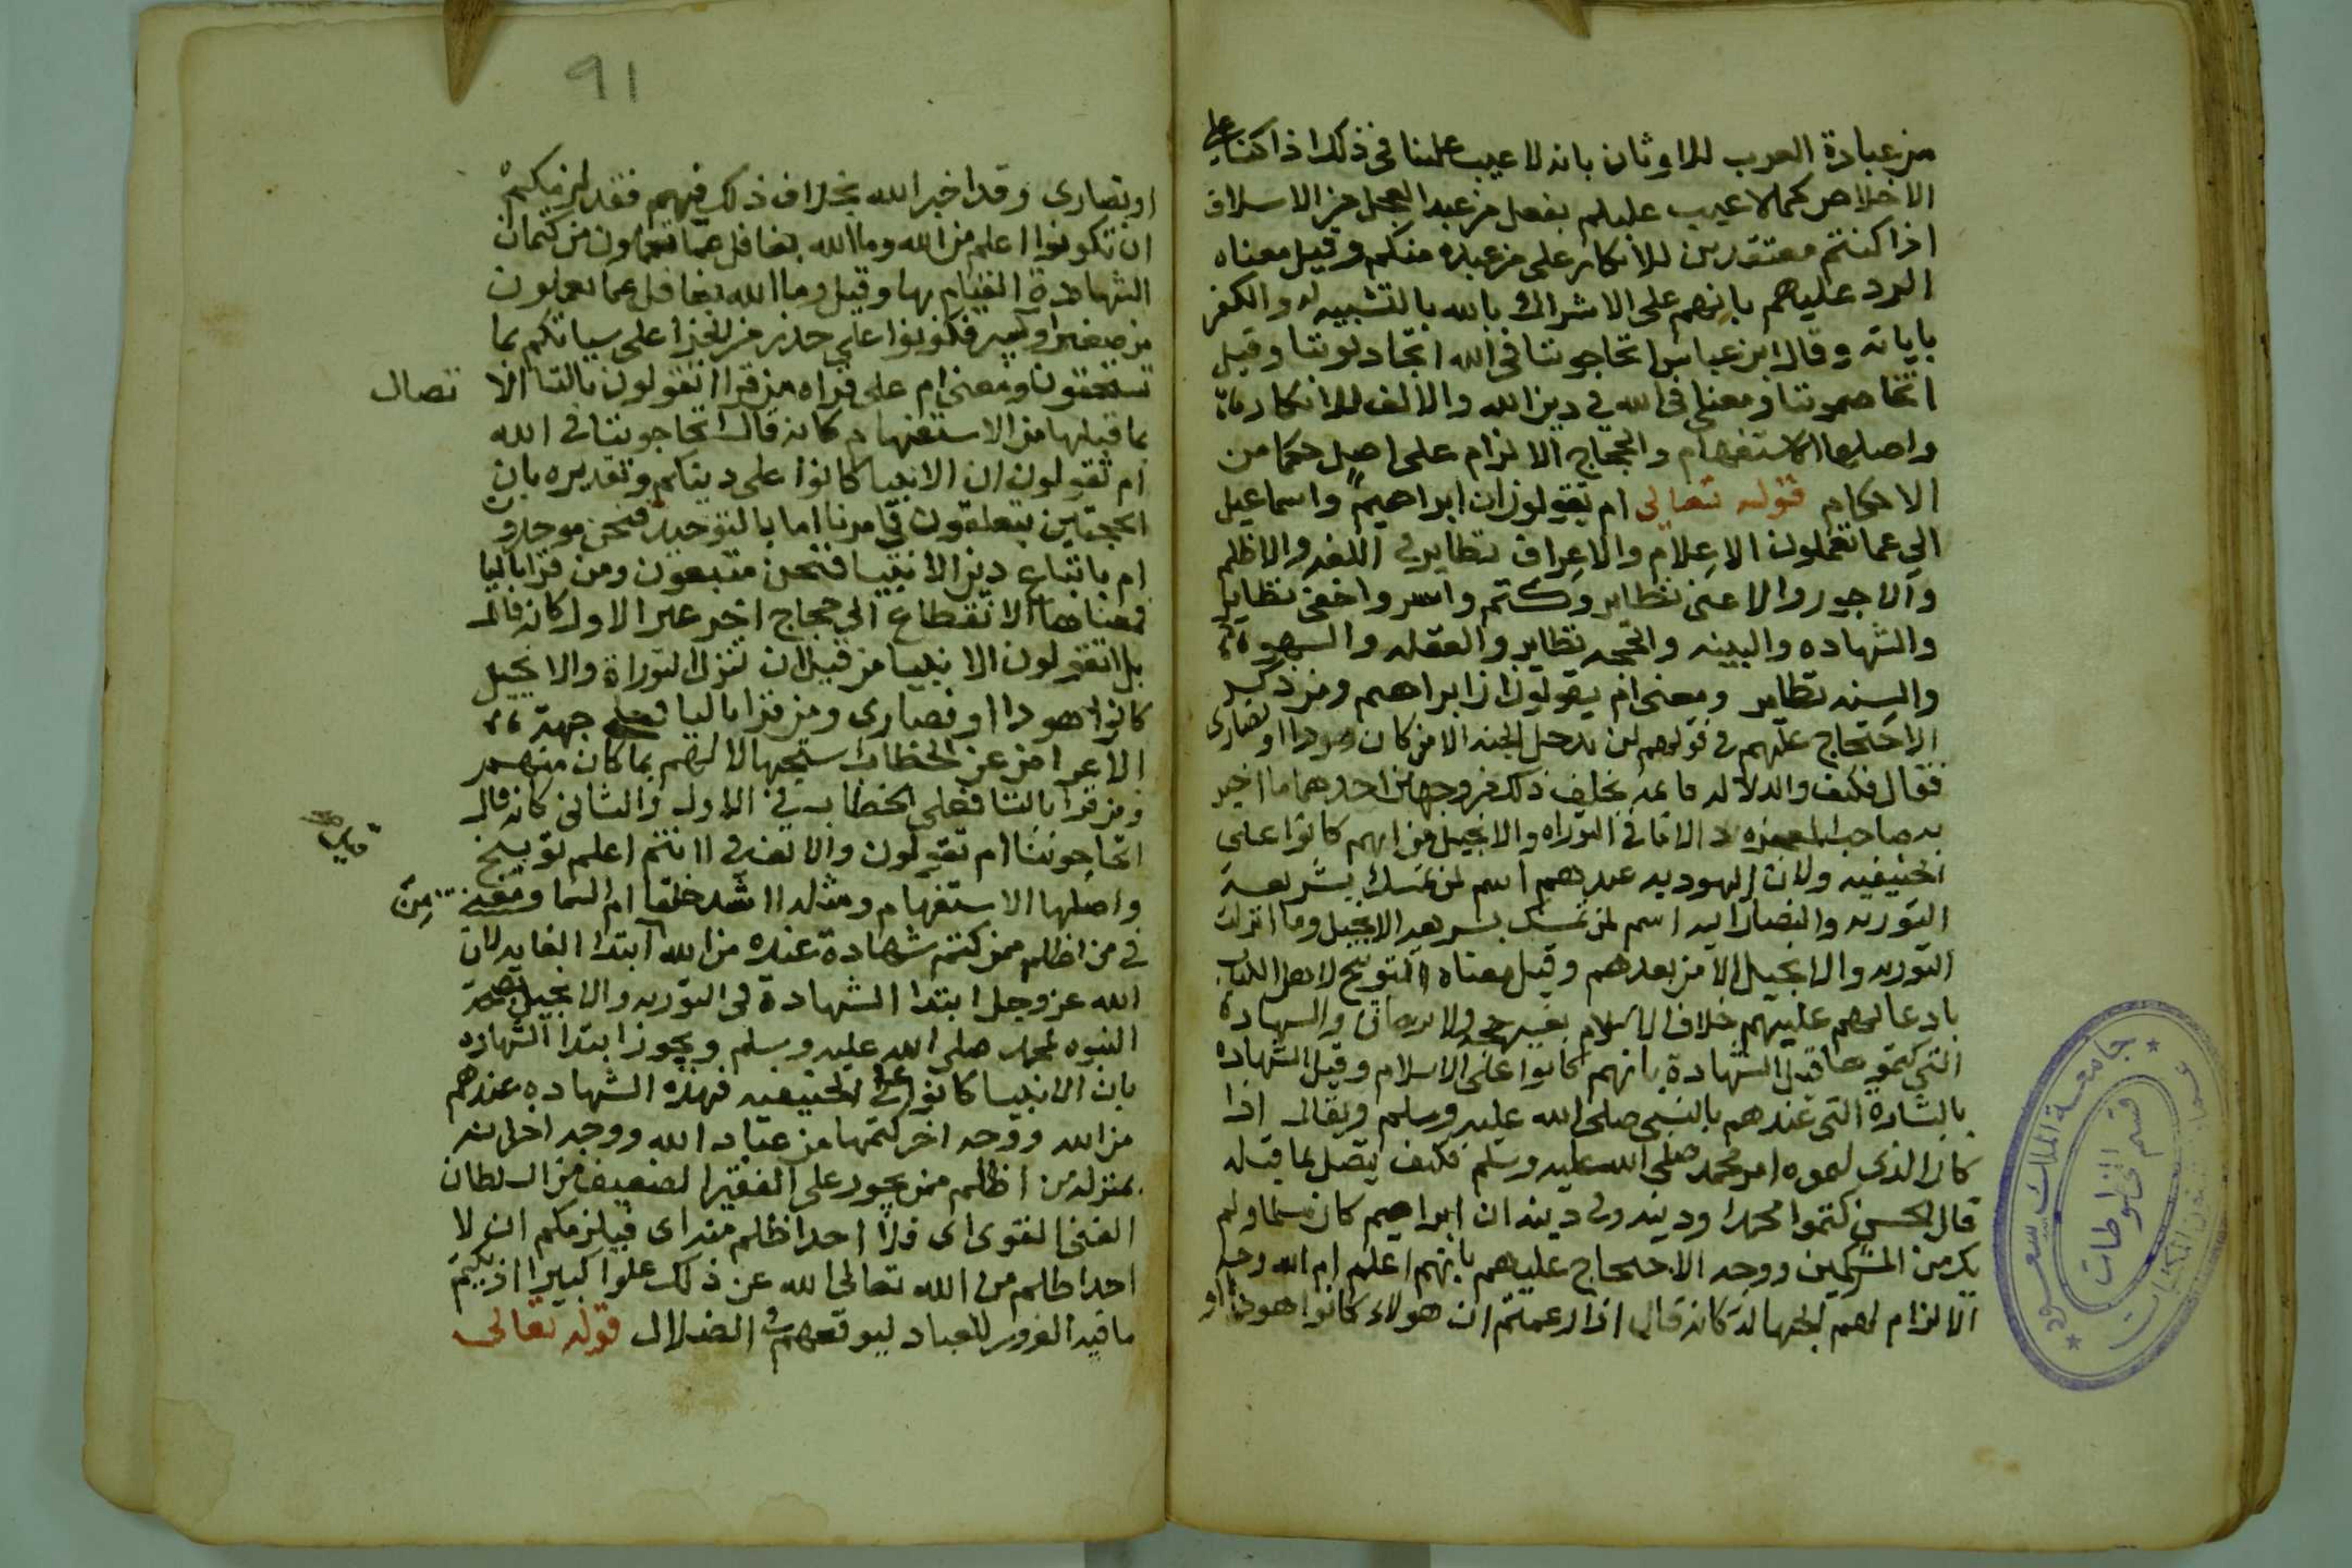 من عبادة العرب للاوثان بانه لا عيب علينا في ذلك اذا كنا على
الاخلاص كما لا عيب عليكم بفعل من عبد العجل من الاسلاف
اذا كنتم معتقدين للانكار على من عبده منكم وقيل معناه
الرد عليهم بانهم على الاشراك بالله بالتشبيه له والكفر
باياته وقال ابن عباس اتحاجوننا في الله اتجادلوننا وقيل
اتخاصموننا ومعنى في الله في دين الله والالف للانكار
واصلها الاستفهام والحجاج الالزام على اصل حكما من
الاحكام قوله تعالى ام تقولون ان ابراهيم واسماعيل
الى عما تعملون الاعلام والاعراف نظاير في اللغه والاظلم
والاجور والاعتى نظاير وكتم واسر واخفى نظاير
والشهاده والبينه والحجه نظاير والغفله والسهو
والسنه نظاير ومعنى ام يقولون ان ابراهيم ومن ذكر
الاحتجاج عليهم في قولهم لن يدخل الجنه الا من كان هودا او نصارى
فقال فكيف والدلاله قايمه بخلاف ذلك من وجهين احدهما ما اخبر
به صاحب المعجزه والاثا في التوراه والانجيل من انهم كانوا على
الحنيفيه ولان اليهوديه عندهم اسم لمن تمسك بشريعة
التوريه والنصرانيه اسم لمن تمسك بشريعة الانجيل وما انزلت
التوريه والانجيل الا من بعدهم وقيل معناه التوبيخ لاهل الكتاب
بادعايهم عليهم خلاف الاسلام بغير حجه ولا برهان والشهادة
التي كتموها قيل الشهادة بانهم كانوا على الاسلام وقيل الشهاده
بالبشارة التي عندهم بالنبي صلى الله عليه وسلم ويقال اذا
كان الذي كتموه امر محمد صلى الله عليه وسلم فكيف يتصل بما قبله
قال الحسن كتموا محمدا ودينه وفي دينه ان ابراهيم كان مسلما ولم
يكن من المشركين ووجه الاحتجاج عليهم بانهم اعلم ام الله وجه
الالزام لهم الجهالة كانه قال اذا زعمتم ان هولاء كانوا هودا او
91
او نصارى وقد اخبر الله بخلاف ذلك فيهم فقد لزمكم
ان تكونوا اعلم من الله وما الله بغافل عما تعملون من كتمان
الشهادة القيام بها وقيل وما الله بغافل عما تعملون
من صغير او كبير فكونوا على حذر من الجزا على سياتكم بما
تستحقون ومعنى ام على قراه من قرا اتقولون بالتا الا تصال
بما قبلها من الاستفهام كانه قال اتحاجوننا في الله
ام تقولون ان الانبيا كانوا على دينكم وتقديره باي
الحجتين تتعلقون في امرنا اما بالتوحيد فنحن موحدون
ام باتباع دين الانبيا فنحن متبعون ومن قرا باليا
فمعناها الانقطاع الى حجاج اخر عير الاول كانه قال
بل اتقولون الانبيا من قبل ان تنزل التوراة والانجيل
كانوا هودا او نصارى ومن قرا باليا فعلى جهة
الاعراض عن الخطاب استجهالا لهم بما كان منهم
ومن قرا بالتا فعلى الخطاب في الاول والثاني كانه قال
اتحاجوننا ام تقولون والالف في اانتم اعلم توبيخ
واصلها الاستفهام ومثله ااشد خلقا ام السما ومعنى مِنَ
في من اظلم ممن كتم شهادة عنده من الله ابتدا الغايه لان
الله عز وجل ابتدا الشهادة في التوريه والانجيل بصحة
النبوه لمحمد صلى الله عليه وسلم ويجوز ابتدا الشهاده
بان الانبيا كانوا على الحنيفيه فهذه الشهاده عندهم
من الله ووجه اخر كتمها من عباد الله ووجه اخر انه
بمنزله من اظلم ممن يجور على الفقير الضعيف من السلطان
الغني القوي اي فلا احد اظلم منه اي فيلزمكم ان لا
احد اظلم من الله تعالى الله عن ذلك علوا كبيرا اذ يكتم
ما فيه الغرور للعباد ليوقعهم في الضلال قوله تعالى
جامعة الملك سعود
قسم المخطوطات